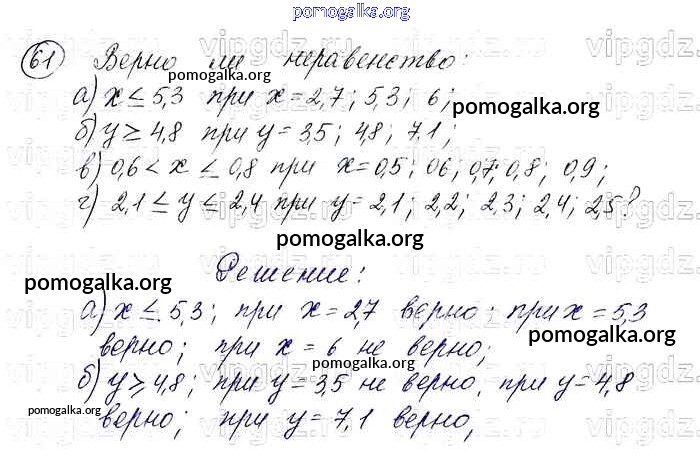 pomogalka.org
61 Верно ли неравенство:
pomogalka.org
а) x ≤ 5,3 при x = 2,7; 5,3; 6;
pomogalka.org
б) y ≥ 4,8 при y = 3,5; 4,8; 7,1;
pomogalka.org
в) 0,6 < x ≤ 0,8 при x = 0,5; 06; 0,7; 0,8; 0,9;
г) 2,1 ≤ y ≤ 2,4 при y = 2,1; 2,2; 2,3; 2,4; 2,5?
pomogalka.org
Решение:
pomogalka.org
а) x ≤ 5,3; при x = 2,7 верно; при x = 5,3
pomogalka.org
верно; при x = 6 не верно;
pomogalka.org
б) y ≥ 4,8; при y = 3,5 не верно, при y = 4,8
pomogalka.org
верно; при y = 7,1 верно,
pomogalka.org